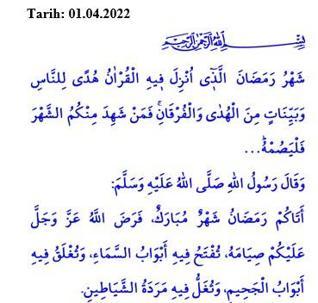 Tarih: 01.04.2022
بِسْمِ اللّٰهِ الرَّحْمٰنِ الرَّحِيمِ
شَهْرُ رَمَضَانَ الَّذ۪ٓي اُنْزِلَ ف۪يهِ الْقُرْاٰنُ هُدًى لِلنَّاسِ
وَبَيِّنَاتٍ مِنَ الْهُدٰى وَالْفُرْقَانِۚ فَمَنْ شَهِدَ مِنْكُمُ الشَّهْرَ
فَلْيَصُمْهُۜ...
وَقَالَ رَسُولُ اللّٰهِ صَلَّى اللّٰهُ عَلَيْهِ وَسَلَّمَ:
أَتَاكُمْ رَمَضَانُ شَهْرٌ مُبَارَكٌ، فَرَضَ اللّٰهُ عَزَّ وَجَلَّ
عَلَيْكُمْ صِيَامَهُ، تُفْتَحُ فِيهِ أَبْوَابُ السَّمَاءِ، وَتُغْلَقُ فِيهِ
أَبْوَابُ الْجَحِيمِ، وَتُغَلُّ فِيهِ مَرَدَةُ الشَّيَاطِينِ.